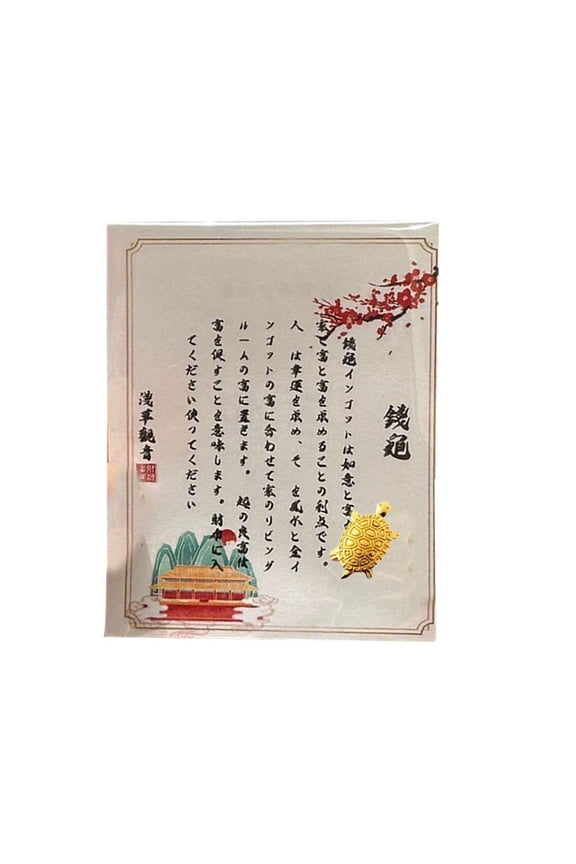 錢龜
錢龜インゴットは如意と富
家で富と富を求めることの利点です。
人　は幸運を求め、そ　を風水と金イ
ンゴットの富に合わせて家のリビング
ルームの富に置きます。　超の良富は
富を促すことを意味します。財布に入
てください使ってください
淺草觀音